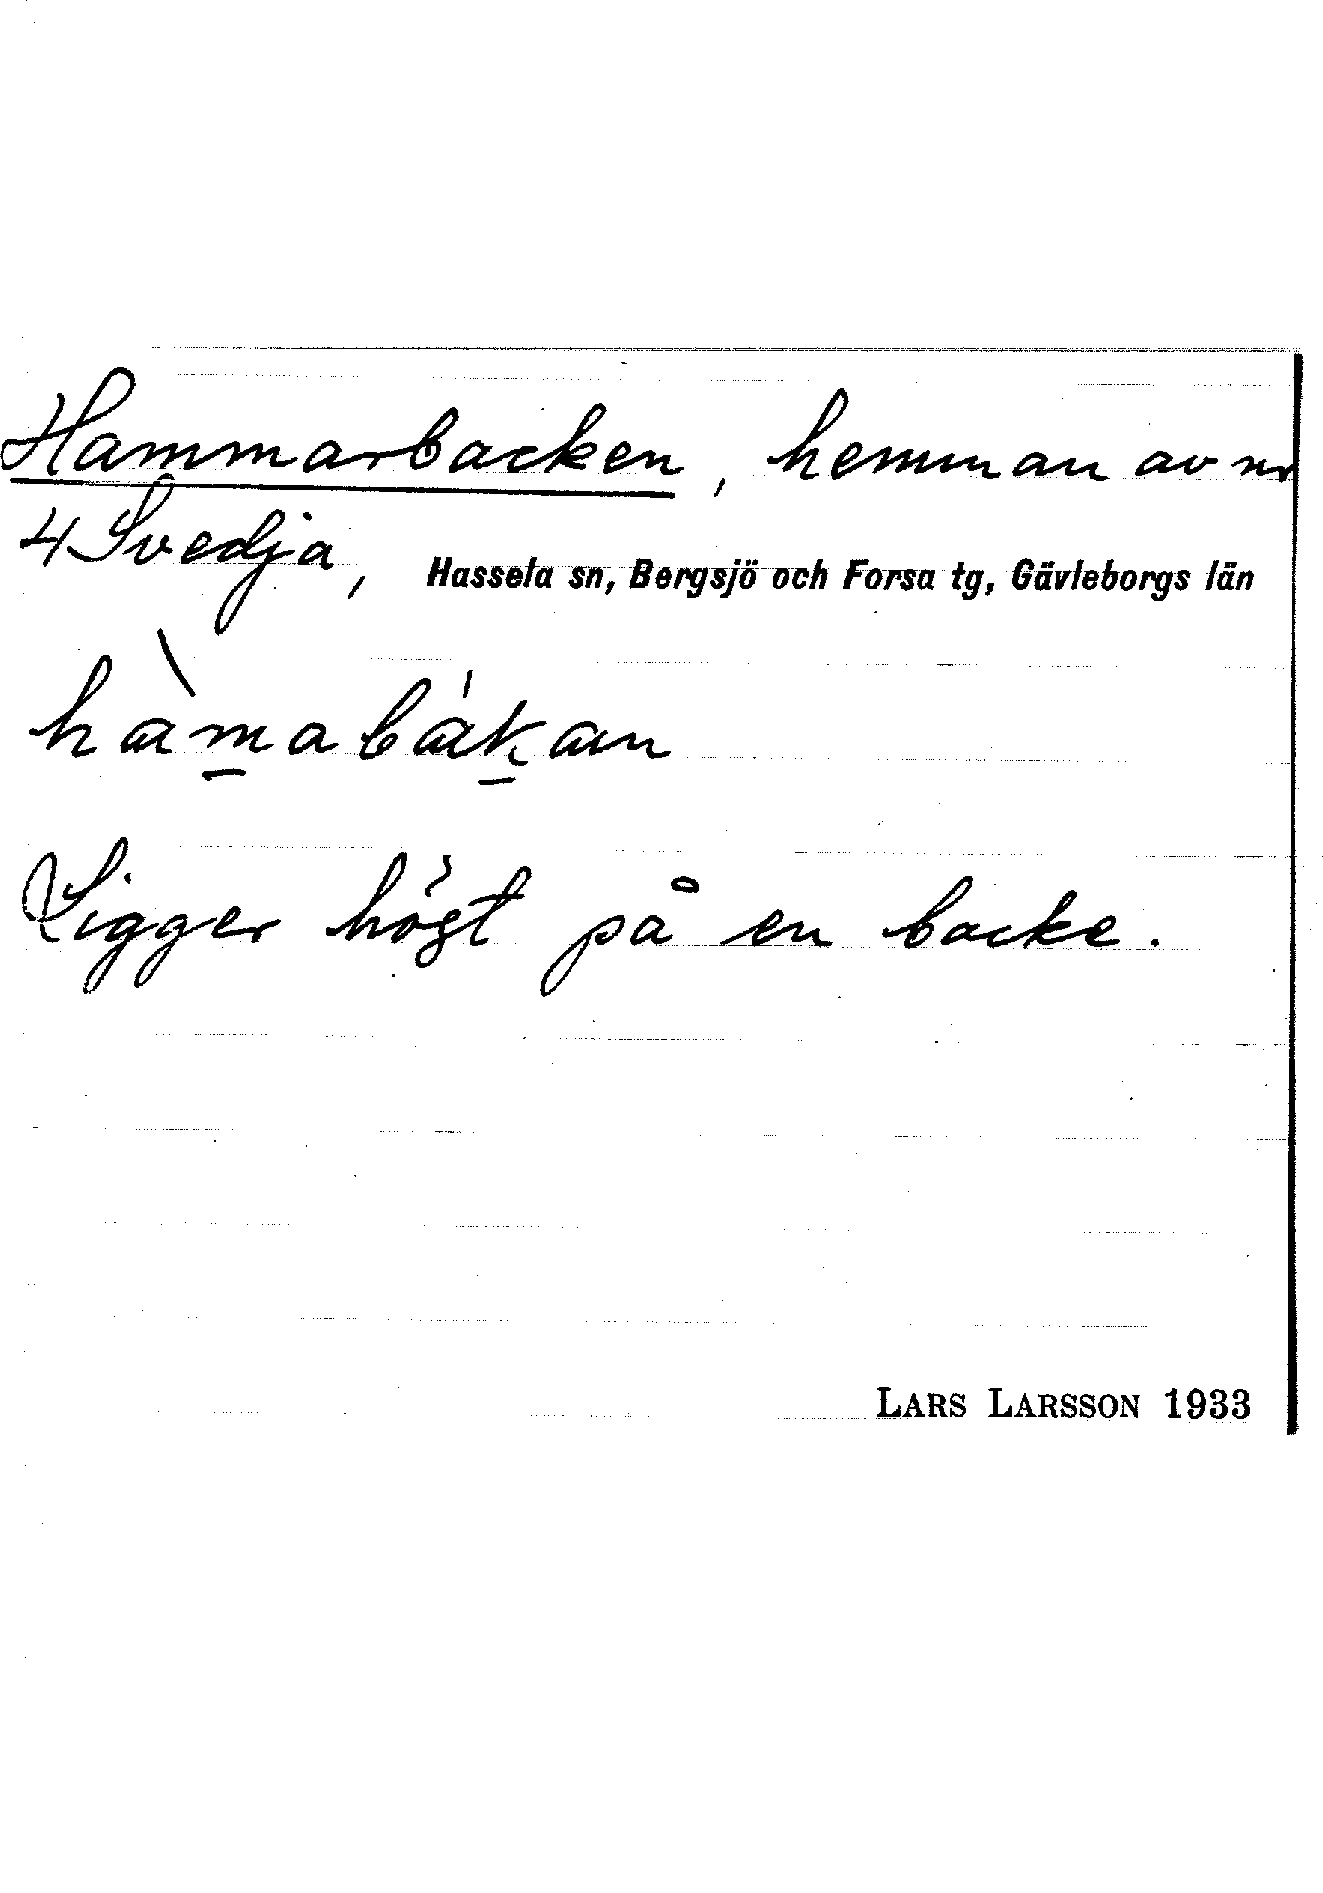 Hammarbacken, hemman av nr
4 Svedja, Hassela sn, Bergsjö och Forsa tg, Gävleborgs län
hàm̲abák̲an
Ligger högt på en backe.
LARS LARSSON 1933